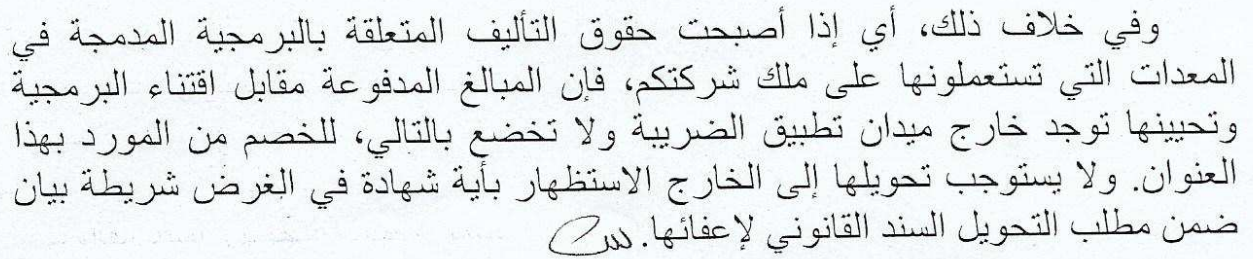 وفي خلاف ذلك، أي إذا أصبحت حقوق التأليف المتعلقة بالبرمجية المدمجة في
المعدات التي تستعملونها على ملك شركتكم، فإن المبالغ المدفوعة مقابل اقتناء البرمجية
وتحيينها توجد خارج ميدان تطبيق الضريبة ولا تخضع بالتالي، للخصم من المورد بهذا
العنوان. ولا يستوجب تحويلها إلى الخارج الاستظهار بأية شهادة في الغرض شريطة بيان
ضمن مطلب التحويل السند القانوني لإعفائها.